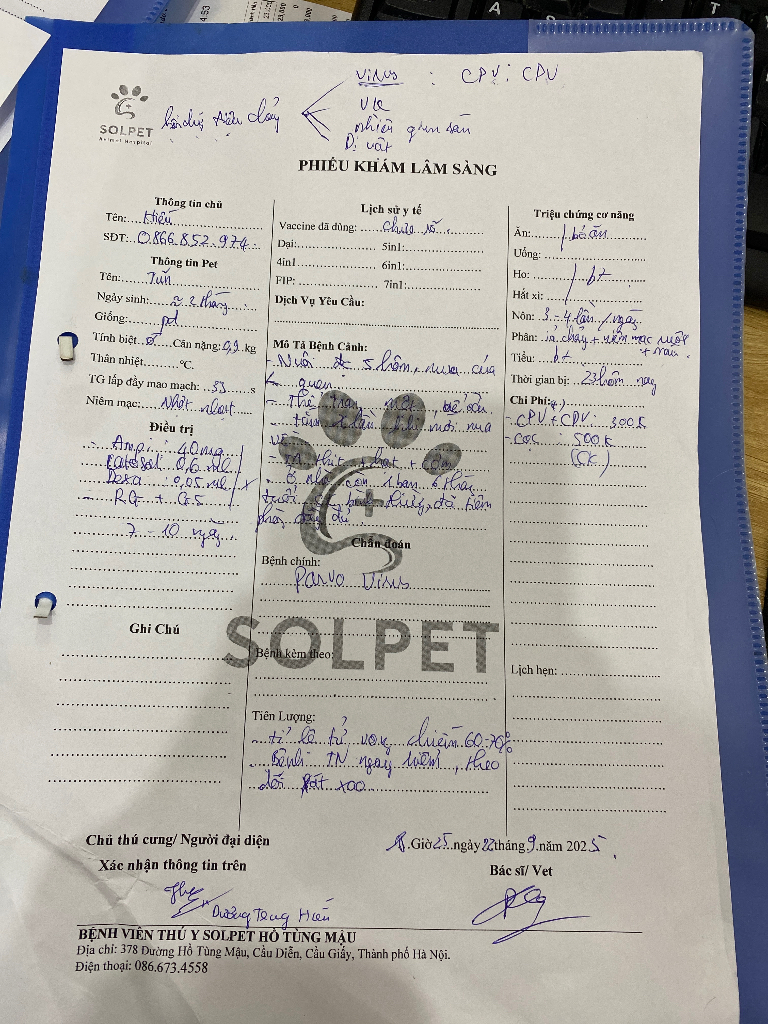 Virus : CPV; CDV
SOLPET
Animal Hospital
hội chứng tiêu chảy
VK
nhiễm giun sán
Dị vật
PHIẾU KHÁM LÂM SÀNG
Thông tin chủ
Tên: Hiếu
SĐT: 0.866.852.974
Thông tin Pet
Tên: Tun
Ngày sinh: ≈ 2 tháng
Giống: pd
Tính biệt: ♂ Cân nặng: 0,9 kg
Thân nhiệt °C.
TG lấp đầy mao mạch: s
Niêm mạc: Nhợt nhạt
Điều trị
- Amp: 40mg
Catosal 0,6 ml
Dexa: 0,05 ml
- RG + G5
7 - 10 ngày
Ghi Chú
Lịch sử y tế
Vaccine đã dùng: chưa rõ
Dại: 5in1:
4in1 6in1:
FIP: 7in1:
Dịch Vụ Yêu Cầu:
Mô Tả Bệnh Cảnh:
- Nuôi 5 hôm, mua của
quen
- Thể trạng
tắm 1 lần khi mới mua
về
- TA: thịt + hạt + cơm
- Ở nhà còn 1 bạn 6 tháng
tuổi đã tiêm
phòng đầy đủ
Chẩn đoán
Bệnh chính:
Parvo Virus
SOLPET
Bệnh kèm theo:
Tiên Lượng:
- tỉ lệ tử vong chiếm 60-70%
- Bệnh TN nguy hiểm, theo
dõi sát
Triệu chứng cơ năng
Ăn: bỏ ăn
Uống:
Ho: bt
Hắt xì:
Nôn: 3 - 4 lần / ngày
Phân: ỉa chảy + niêm mạc ruột
+ máu
Tiểu: bt
Thời gian bị: 2 3 hôm nay
Chi Phí:
- CPV + CDV: 300K
- Cọc : 500K
(CK)
Lịch hẹn:
Chủ thú cưng/ Người đại diện
Xác nhận thông tin trên
Giờ 25 ngày 22 tháng 9 năm 2025
Bác sĩ/ Vet
Dương Hiếu
BỆNH VIỆN THÚ Y SOLPET HỒ TÙNG MẬU
Địa chỉ: 378 Đường Hồ Tùng Mậu, Cầu Diễn, Cầu Giấy, Thành phố Hà Nội.
Điện thoại: 086.673.4558